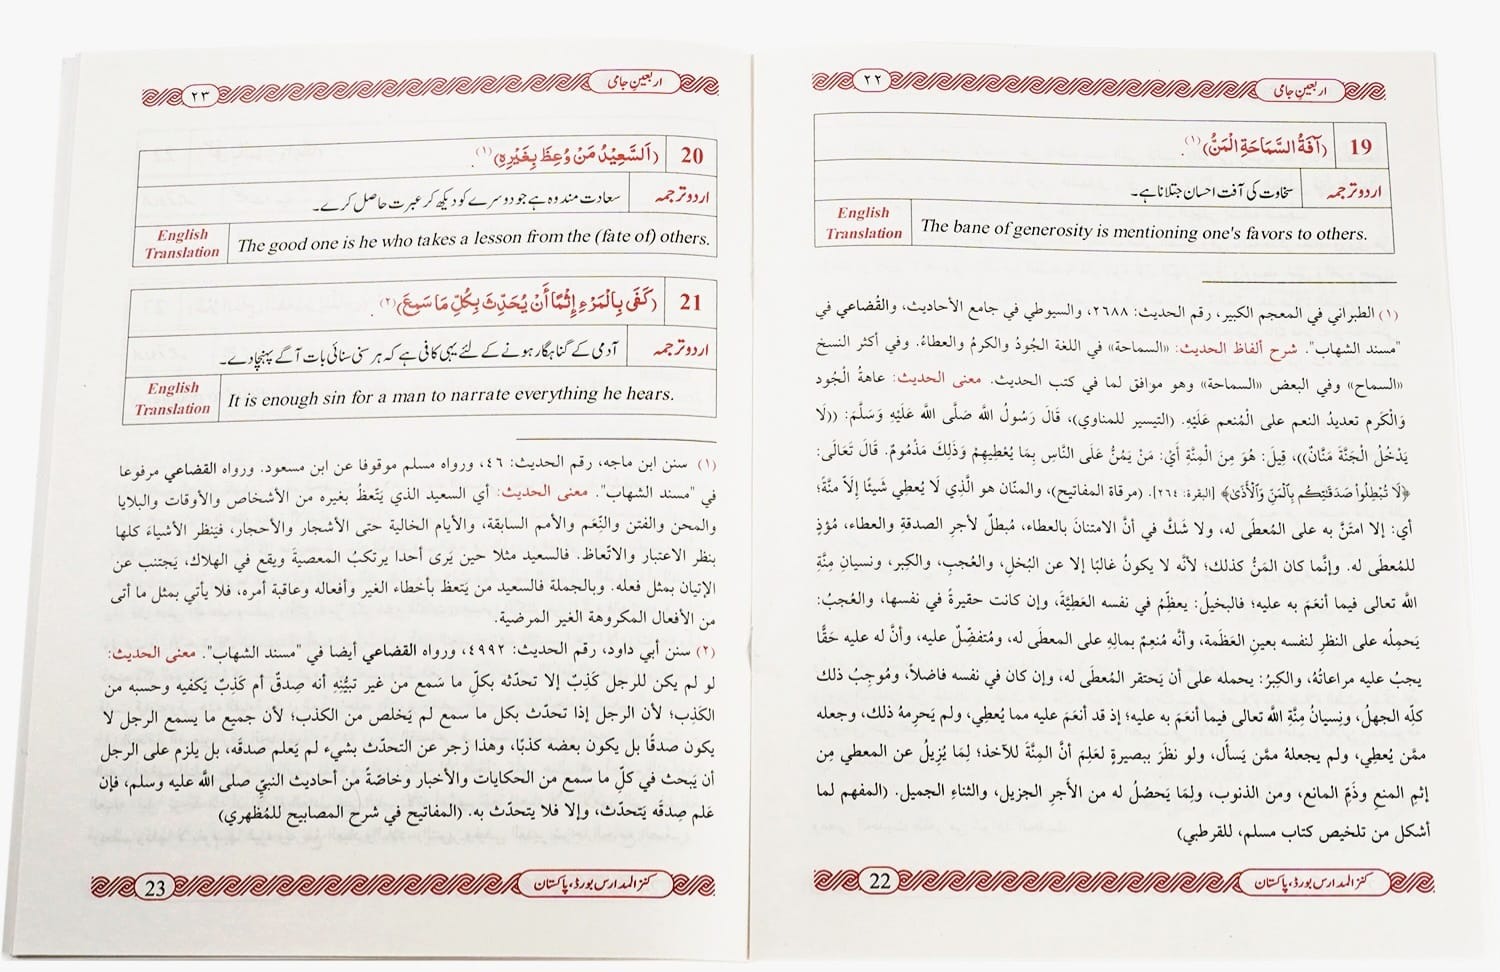 ٢٢ اربعینِ جامی
19 (آفَةُ السَّمَاحَةِ الْمَنُّ)(١).
اردو ترجمہ سخاوت کی آفت احسان جتلانا ہے۔
English Translation The bane of generosity is mentioning one's favors to others.
(١) الطبراني في المعجم الكبير، رقم الحديث: ٢٦٨٨، والسيوطي في جامع الأحاديث، والقُضاعي في
"مسند الشهاب". شرح ألفاظ الحديث: «السماحة» في اللغة الجُودُ والكرمُ والعطاءُ. وفي أكثر النسخ
«السماح» وفي البعض «السماحة» وهو موافق لما في كتب الحديث. معنى الحديث: عاهةُ الْجُود
وَالْكَرم تعديدُ النعم على الْمُنعم عَلَيْهِ. (التيسير للمناوي)، قَالَ رَسُولُ اللَّه صَلَّى اللَّه عَلَيْهِ وَسَلَّمَ: ((لَا
يَدْخُلُ الْجَنَّةَ مَنَّانٌ))، قِيلَ: هُوَ مِنَ الْمِنَّةِ أَيْ: مَنْ يَمُنُّ عَلَى النَّاسِ بِمَا يُعْطِيهِمْ وَذَلِكَ مَذْمُومٌ. قَالَ تَعَالَى:
﴿لَا تُبْطِلُواْ صَدَقَٰتِكُم بِٱلْمَنِّ وَٱلْأَذَىٰ﴾ [البقرة: ٢٦٤]. (مرقاة المفاتيح)، والمنّان هو الَّذِي لَا يُعطي شَيئًا إِلَّا مَنَّةً؛
أي: إلا امتَنَّ به على المُعطَى له، ولا شَكَّ في أنَّ الامتنانَ بالعطاء، مُبطلٌ لأجرِ الصدقةِ والعطاء، مُؤذٍ
للمُعطَى له. وإنَّما كان المَنُّ كذلك؛ لأنَّه لا يكونُ غالبًا إلا عن البُخلِ، والعُجبِ، والكِبر، ونسيانِ مِنَّةِ
اللَّه تعالى فيما أنعَمَ به عليه؛ فالبخيلُ: يعظِّمُ في نفسه العَطِيَّةَ، وإن كانت حقيرةً في نفسها، والعُجبُ:
يَحمِلُه على النظرِ لنفسه بعينِ العَظَمة، وأنَّه مُنعِمٌ بمالِه على المعطَى له، ومُتفضِّلٌ عليه، وأنَّ له عليه حَقًّا
يجبُ عليه مراعاتُهُ، والكِبرُ: يحمله على أن يَحتقر المُعطَى له، وإن كان في نفسه فاضلاً، ومُوجِبُ ذلك
كلِّه الجهلُ، ونِسيانُ مِنَّةِ اللَّه تعالى فيما أنعَمَ به عليه؛ إذ قد أنعَمَ عليه مما يُعطِي، ولم يَحرِمهُ ذلك، وجعله
ممَّن يُعطِي، ولم يجعلهُ ممَّن يَسأل، ولو نظَرَ ببصيرةٍ لعَلِمَ أنَّ المِنَّةَ للآخذ؛ لِمَا يُزِيلُ عن المعطي مِن
إثمِ المنعِ وذَمِّ المانع، ومن الذنوب، ولِمَا يَحصُلُ له من الأجرِ الجزيل، والثناءِ الجميل. (المفهم لما
أشكل من تلخيص كتاب مسلم، للقرطبي)
22 کنز المدارس بورڈ، پاکستان
٢٣ اربعینِ جامی
20 (اَلسَّعِيْدُ مَنْ وُعِظَ بِغَيْرِهٖ)(١).
اردو ترجمہ سعادت مند وہ ہے جو دوسرے کو دیکھ کر عبرت حاصل کرے۔
English Translation The good one is he who takes a lesson from the (fate of) others.
21 (كَفَى بِالْمَرْءِ إِثْمًا أَنْ يُحَدِّثَ بِكُلِّ مَا سَمِعَ)(٢).
اردو ترجمہ آدمی کے گناہگار ہونے کے لئے یہی کافی ہے کہ ہر سنی سنائی بات آگے پہنچا دے۔
English Translation It is enough sin for a man to narrate everything he hears.
(١) سنن ابن ماجه، رقم الحديث: ٤٦، ورواه مسلم موقوفا عن ابن مسعود. ورواه القضاعي مرفوعا
في "مسند الشهاب". معنى الحديث: أي السعيد الذي يَتَّعظُ بغيره من الأشخاص والأوقات والبلايا
والمحن والفتن والنِّعَم والأمم السابقة، والأيام الخالية حتى الأشجار والأحجار، فيَنظر الأشياءَ كلها
بنظر الاعتبار والاتّعاظ. فالسعيد مثلا حين يَرى أحدا يرتكبُ المعصيةَ ويقع في الهلاك، يَجتنب عن
الإتيان بمثل فعله. وبالجملة فالسعيد من يَتعظ بأخطاء الغير وأفعاله وعاقبة أمره، فلا يأتي بمثل ما أتى
من الأفعال المكروهة الغير المرضية.
(٢) سنن أبي داود، رقم الحديث: ٤٩٩٢، ورواه القضاعي أيضا في "مسند الشهاب". معنى الحديث:
لو لم يكن للرجل كَذِبٌ إلا تحدّثه بكلِّ ما سَمع من غير تبيُّنِهِ أنه صِدقٌ أم كَذِبٌ يَكفيه وحسبه من
الكَذِب؛ لأن الرجل إذا تحدّث بكل ما سمع لم يَخلص من الكذب؛ لأن جميع ما يسمع الرجل لا
يكون صدقًا بل يكون بعضه كذبًا، وهذا زجر عن التحدّث بشيء لم يَعلم صدقَه، بل يلزم على الرجل
أن يَبحث في كلِّ ما سمع من الحكايات والأخبار وخاصّةً من أحاديث النبيّ صلى اللَّه عليه وسلم، فإن
عَلم صِدقَه يَتحدّث، وإلا فلا يتحدّث به. (المفاتيح في شرح المصابيح للمُظهري)
23 کنز المدارس بورڈ، پاکستان